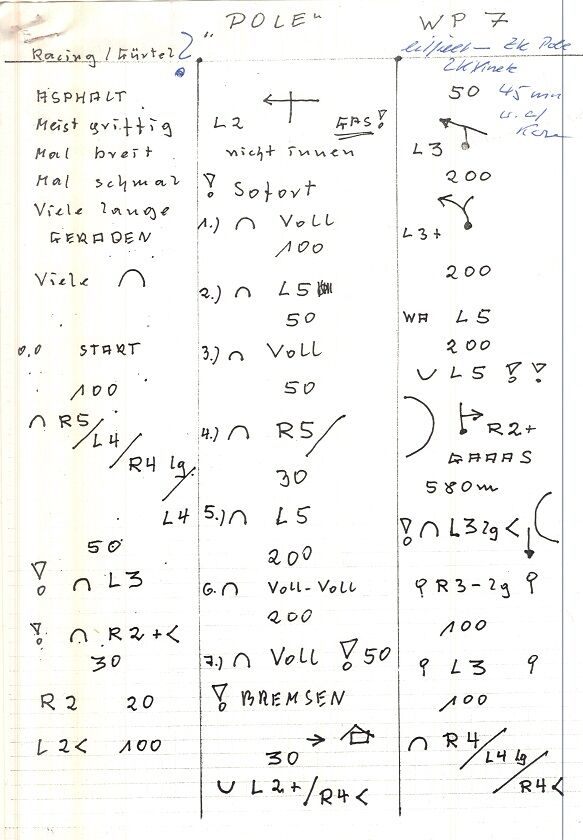 "POLE" WP 7
Racing / Gürtel?
ASPHALT
Meist griffig
Mal breit
Mal schmal
Viele lange
GERADEN
Viele ∩
0,0 START
100
∩ R5/
L4/
R4 lg/
L4
50
! ∩ L3
! ∩ R2+<
30
R2 20
L2< 100
L2 GAS!
nicht innen
! Sofort
1.) ∩ Voll
100
2.) ∩ L5
50
3.) ∩ Voll
50
4.) ∩ R5/
30
5.) ∩ L5
200
6. ∩ Voll-Voll
200
7.) ∩ Voll ! 50
! BREMSEN
30 →
∪ L2+/R4<
2k Pole
50 45 mm
L3
200
L3+
200
WA L5
200
∪ L5 ! !
R2+
GAAAS
580m
! ∩ L3lg<
R3-lg
100
L3
100
∩ R4/
L4 lg/
R4<